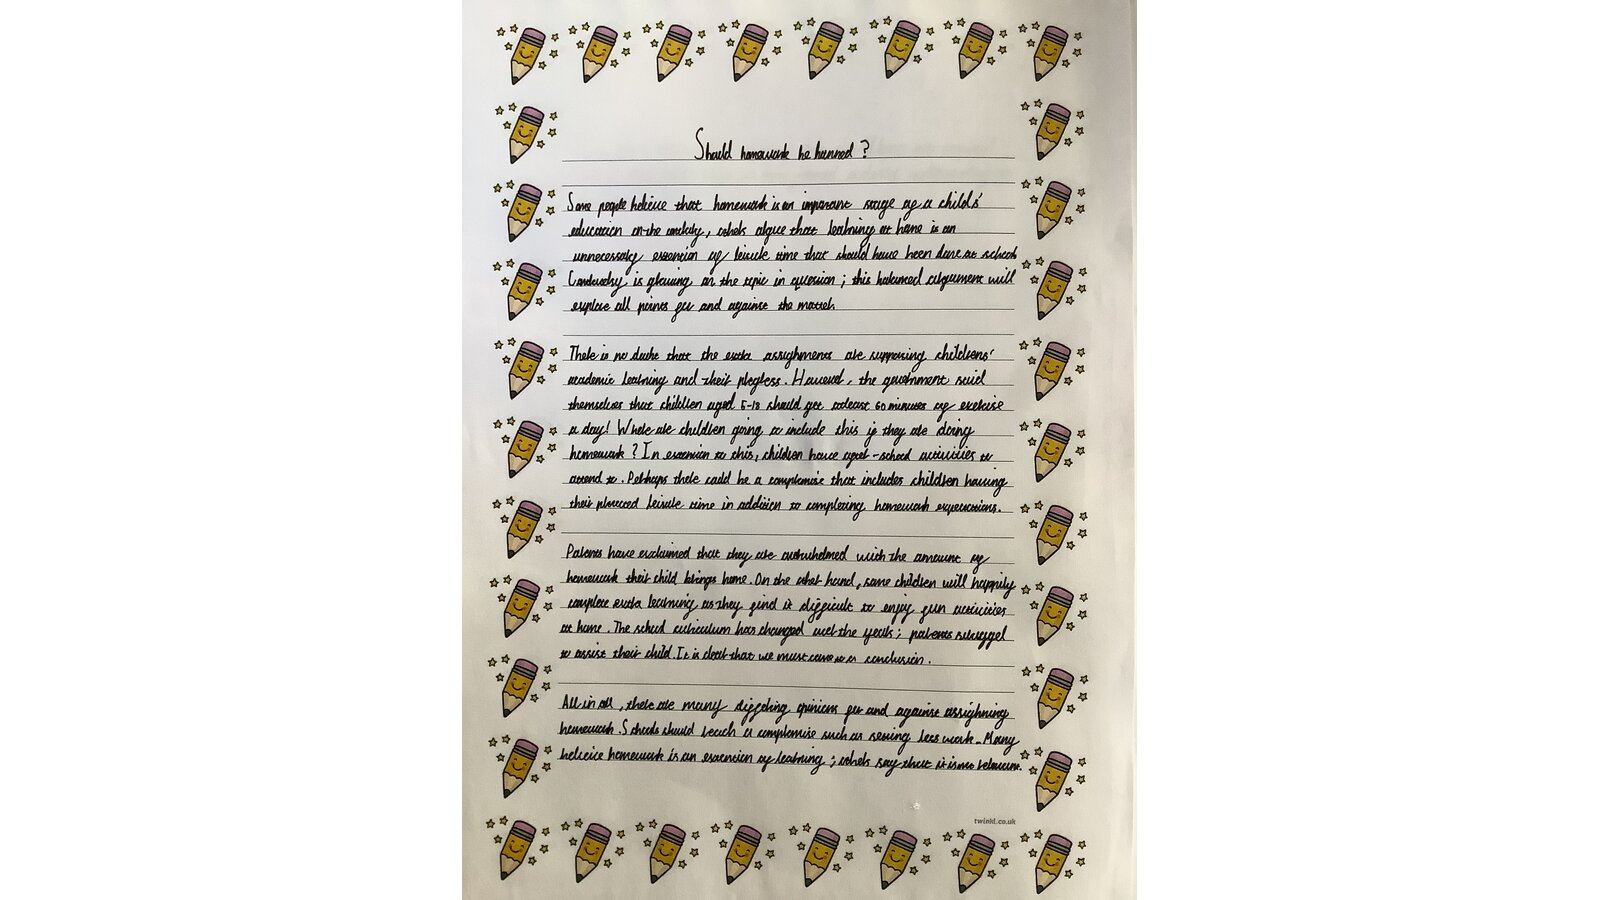 Should homework be banned?
Some people believe that homework is an important stage of a child's'
education on the contrary, others argue that learning at home is an
unnecessary extention of leisure time that should have been done at school.
Controversy is growing on the topic in question; this balanced argument will
explore all points for and against the matter.
There is no doubt that the extra assighments are supporing childrens'
academic learning and their progress. However, the government said
themselves that children aged 5-18 should get atleast 60 minutes of exercise
a day! Where are children going to include this if they are doing
homework? In extention to this, children have after-school activities to
attend to. Perhaps there could be a compromise that includes children having
their leisure time in addition to completing homework expectations.
Parents have exclaimed that they are overwhelmed with the amount of
homework their child brings home. On the other hand, some children will happily
complete extra learning as they find it difficult to enjoy fun activities
at home. The school curriculum has changed over the years; parents struggel
to assist their child. It is clear that we must come to a conclusion.
All in all, there are many differing opinions for and against assighning
homework. Schools should reach a compromise such as setting less work. Many
believe homework is an extention of learning; others say that it is not relevant.
twinkl.co.uk